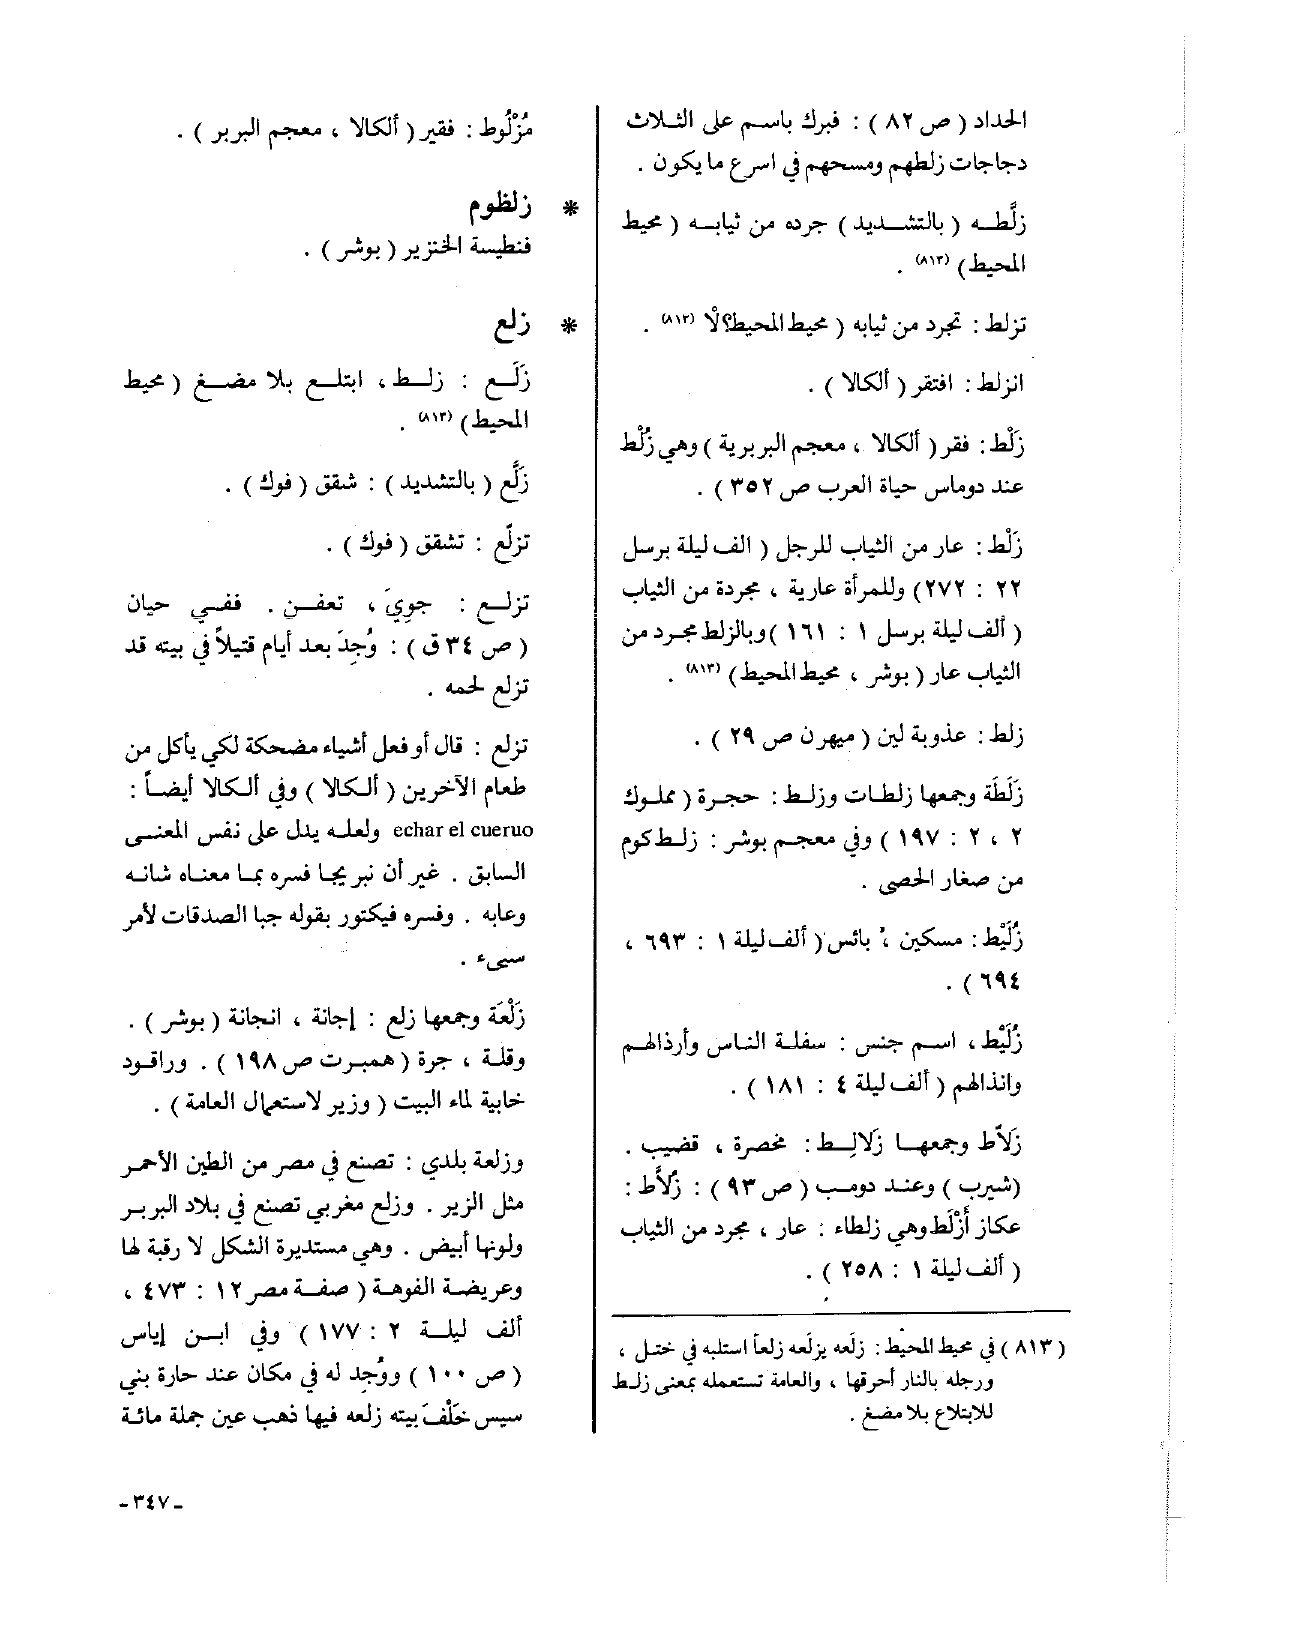 الحداد ( ص ٨٢ ) : فبرك باسم على الثلاث
دجاجات زلطهم ومسحهم في اسرع ما يكون .
زلَّطه ( بالتشديد ) جرده من ثيابه ( محيط
المحيط ) (٨١٣) .
تزلط : تجرد من ثيابه ( محيط المحيط (٨١٣) .
انزلط : افتقر ( ألكالا ) .
زَلْط : فقر ( ألكالا ، معجم البربرية ) وهي زُلْط
عند دوماس حياة العرب ص ٣٥٢ ) .
زَلْط : عار من الثياب للرجل ( الف ليلة برسل
٢٢ : ٢٧٢ ) وللمرأة عارية ، مجردة من الثياب
( ألف ليلة برسل ١ : ١٦١ ) وبالزلط مجرد من
الثياب عار ( بوشر ، محيط المحيط ) (٨١٣) .
زلط : عذوبة لين ( ميهرن ص ٢٩ ) .
زَلَطَة وجمعها زلطات وزلط : حجرة ( مملوك
٢ ، ٢ : ١٩٧ ) وفي معجم بوشر : زلط كوم
من صغار الحصى .
زُلَيْط : مسكين ، بائس ( ألف ليلة ١ : ٦٩٣ ،
٦٩٤ ) .
زُلَيْط ، اسم جنس : سفلة الناس وأرذالهم
وانذالهم ( ألف ليلة ٤ : ١٨١ ) .
زَلاَّط وجمعها زَلالِط : مخصرة ، قضيب .
(شيرب ) وعند دومب ( ص ٩٣ ) : زُلاَّط :
عكاز أَزْلَط وهي زلطاء : عار ، مجرد من الثياب
( ألف ليلة ١ : ٢٥٨ ) .
( ٨١٣ ) في محيط المحيط : زلَعه يزلَعه زلعاً استلبه في ختل ،
ورجله بالنار أحرقها ، والعامة تستعمله بمعنى زلط
للابتلاع بلا مضغ .
مُزْلُوط : فقير ( ألكالا ، معجم البربر ) .
* زلظوم
فنطيسة الخنزير ( بوشر ) .
* زلع
زَلَع : زلط ، ابتلع بلا مضغ ( محيط
المحيط ) (٨١٣) .
زلَّع ( بالتشديد ) : شقق ( فوك ) .
تزلّع : تشقق ( فوك ) .
تزلع : جوِيَ ، تعفن . ففي حيان
( ص ٣٤ ق ) : وُجِدَ بعد أيام قتيلاً في بيته قد
تزلع لحمه .
تزلع : قال أو فعل أشياء مضحكة لكي يأكل من
طعام الآخرين ( ألكالا ) وفي ألكالا أيضاً :
echar el cueruo ولعله يدل على نفس المعنى
السابق . غير أن نبريجا فسره بما معناه شانه
وعابه . وفسره فيكتور بقوله جبا الصدقات لأمر
سيىء .
زَلْعَة وجمعها زلع : إجانة ، انجانة ( بوشر ) .
وقلة ، جرة ( همبرت ص ١٩٨ ) . وراقود
خابية لماء البيت ( وزير لاستعمال العامة ) .
وزلعة بلدي : تصنع في مصر من الطين الأحمر
مثل الزير . وزلع مغربي تصنع في بلاد البربر
ولونها أبيض . وهي مستديرة الشكل لا رقبة لها
وعريضة الفوهة ( صفة مصر ١٢ : ٤٧٣ ،
ألف ليلة ٢ : ١٧٧ ) وفي ابن إياس
( ص ١٠٠ ) ووُجد له في مكان عند حارة بني
سيس خَلْفَ بيته زلعه فيها ذهب عين جملة مائة
- ٣٤٧ -